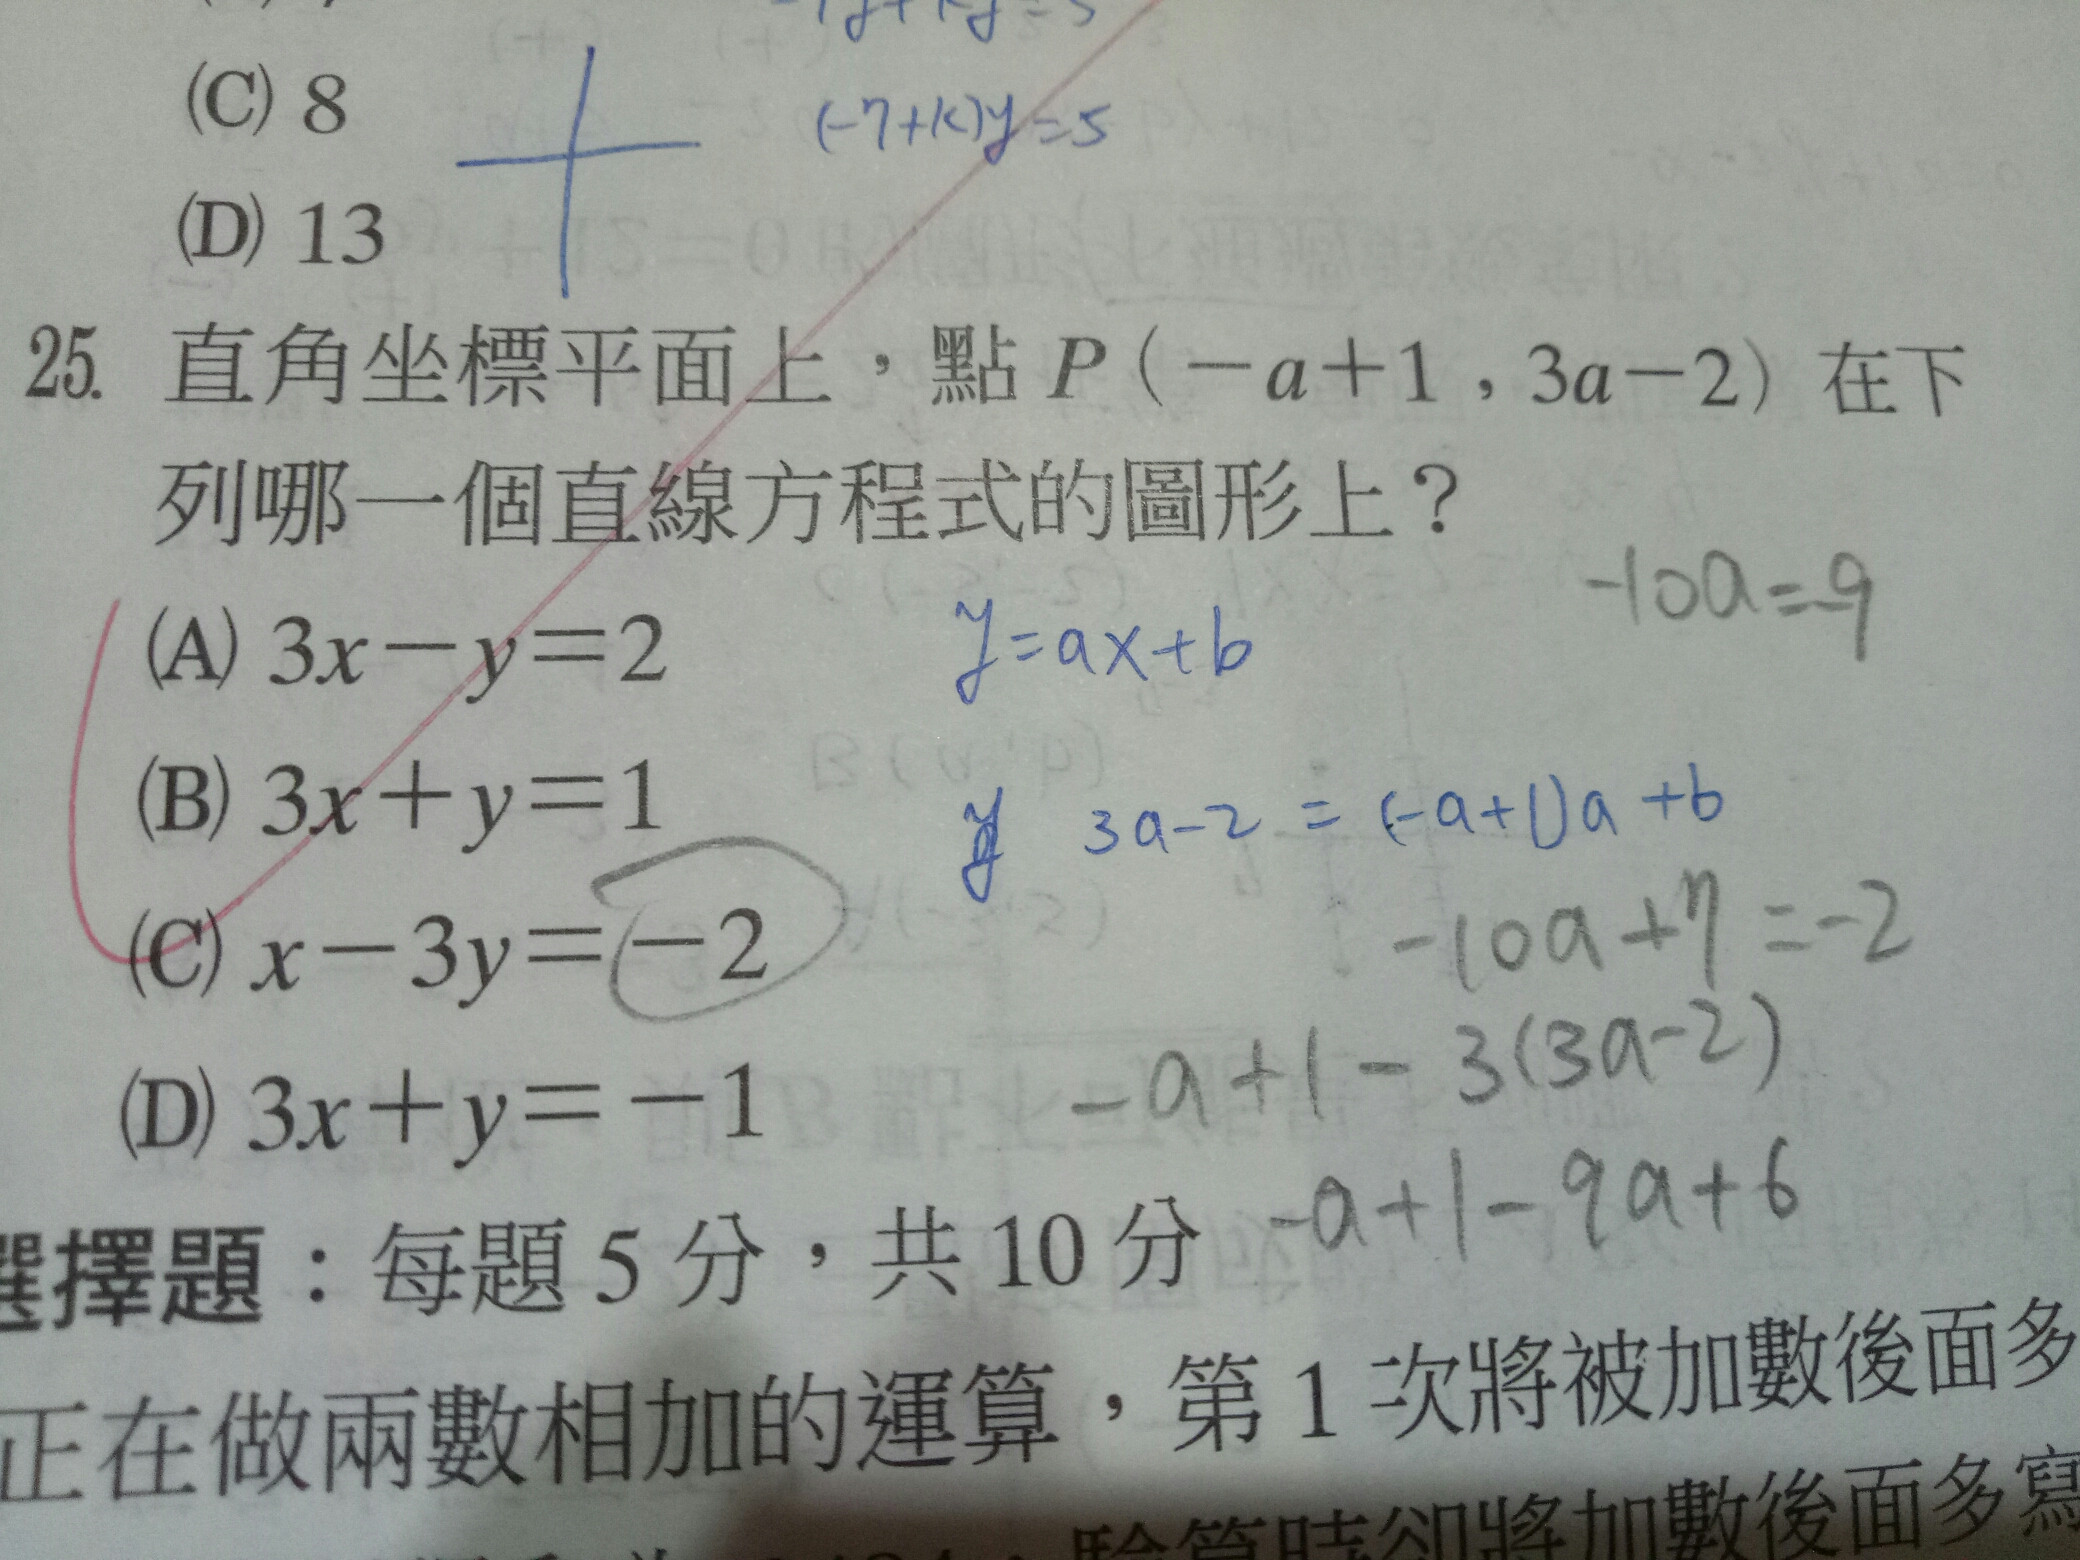 (C) 8
(-7+k)y=5
(D) 13
25. 直角坐標平面上，點 P（-a+1，3a-2）在下
列哪一個直線方程式的圖形上？
-10a=-9
(A) 3x-y=2
y=ax+b
(B) 3x+y=1
y 3a-2 = (-a+1)a+b
(C) x-3y=-2
-10a+7=-2
-a+1-3(3a-2)
(D) 3x+y=-1
-a+1-9a+6
選擇題：每題 5 分，共 10 分
正在做兩數相加的運算，第 1 次將被加數後面多
驗算時卻將加數後面多寫